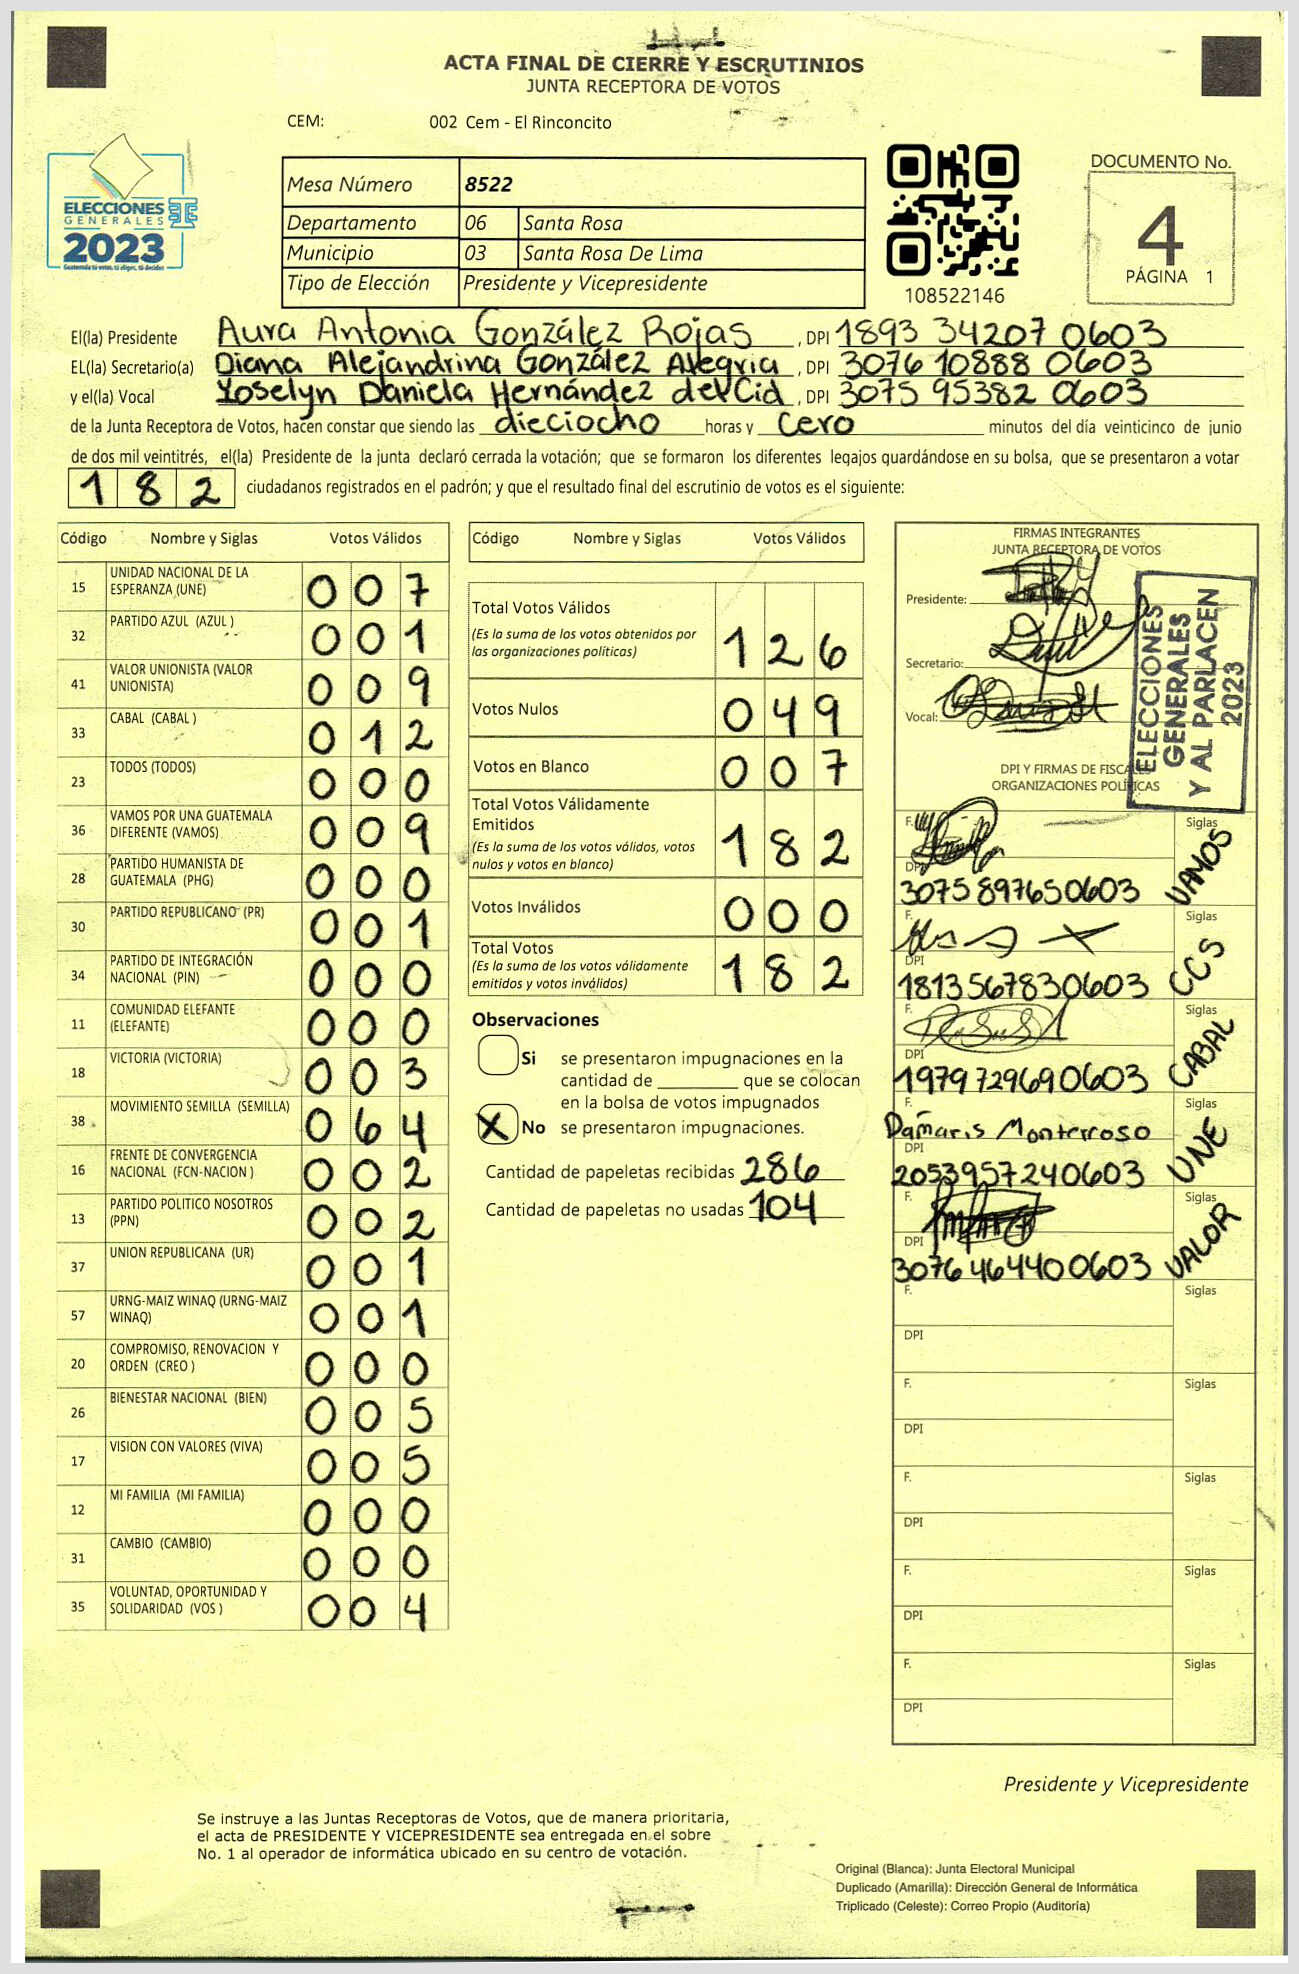 ACTA FINAL DE CIERRE Y ESCRUTINIOS
JUNTA RECEPTORA DE VOTOS
CEM: 002 Cem - El Rinconcito
ELECCIONES
GENERALES
2023
Guatemala tu votas, tú eliges, tú decides
Mesa Número 8522
Departamento 06 Santa Rosa
Municipio 03 Santa Rosa De Lima
Tipo de Elección Presidente y Vicepresidente
108522146
DOCUMENTO No.
4
PÁGINA 1
El(la) Presidente Aura Antonia González Rojas, DPI 1893 34207 0603
EL(la) Secretario(a) Diana Alejandrina González Alegria, DPI 3076 10888 0603
y el(la) Vocal Yoselyn Daniela Hernández del Cid, DPI 3075 95382 0603
de la Junta Receptora de Votos, hacen constar que siendo las dieciocho horas y cero minutos del día veinticinco de junio
de dos mil veintitrés, el(la) Presidente de la junta declaró cerrada la votación; que se formaron los diferentes legajos guardándose en su bolsa, que se presentaron a votar
182 ciudadanos registrados en el padrón; y que el resultado final del escrutinio de votos es el siguiente:
Código Nombre y Siglas Votos Válidos
15 UNIDAD NACIONAL DE LA ESPERANZA (UNE) 007
32 PARTIDO AZUL (AZUL ) 001
41 VALOR UNIONISTA (VALOR UNIONISTA) 009
33 CABAL (CABAL ) 012
23 TODOS (TODOS) 000
36 VAMOS POR UNA GUATEMALA DIFERENTE (VAMOS) 009
28 PARTIDO HUMANISTA DE GUATEMALA (PHG) 000
30 PARTIDO REPUBLICANO (PR) 001
34 PARTIDO DE INTEGRACIÓN NACIONAL (PIN) 000
11 COMUNIDAD ELEFANTE (ELEFANTE) 000
18 VICTORIA (VICTORIA) 003
38 MOVIMIENTO SEMILLA (SEMILLA) 064
16 FRENTE DE CONVERGENCIA NACIONAL (FCN-NACION ) 002
13 PARTIDO POLITICO NOSOTROS (PPN) 002
37 UNION REPUBLICANA (UR) 001
57 URNG-MAIZ WINAQ (URNG-MAIZ WINAQ) 001
20 COMPROMISO, RENOVACION Y ORDEN (CREO ) 000
26 BIENESTAR NACIONAL (BIEN) 005
17 VISION CON VALORES (VIVA) 005
12 MI FAMILIA (MI FAMILIA) 000
31 CAMBIO (CAMBIO) 000
35 VOLUNTAD, OPORTUNIDAD Y SOLIDARIDAD (VOS ) 004
Código Nombre y Siglas Votos Válidos
Total Votos Válidos 126
(Es la suma de los votos obtenidos por
las organizaciones políticas)
Votos Nulos 049
Votos en Blanco 007
Total Votos Válidamente
Emitidos 182
(Es la suma de los votos válidos, votos
nulos y votos en blanco)
Votos Inválidos 000
Total Votos 182
(Es la suma de los votos válidamente
emitidos y votos inválidos)
Observaciones
Si se presentaron impugnaciones en la
cantidad de ________ que se colocan
en la bolsa de votos impugnados
X No se presentaron impugnaciones.
Cantidad de papeletas recibidas 286
Cantidad de papeletas no usadas 104
FIRMAS INTEGRANTES
JUNTA RECEPTORA DE VOTOS
Presidente:
Secretario:
Vocal:
ELECCIONES
GENERALES
Y AL PARLACEN
2023
DPI Y FIRMAS DE FISCALES
ORGANIZACIONES POLÍTICAS
F. Siglas
DPI
3075897650603 VAMOS
F. Siglas
DPI
1813567830603 CCS
F. Siglas
DPI
1979729690603 CABAL
F. Siglas
Damaris Monterroso
DPI
2053957240603 UNE
F. Siglas
DPI
3076464400603 VALOR
F. Siglas
DPI
F. Siglas
DPI
F. Siglas
DPI
F. Siglas
DPI
F. Siglas
DPI
Presidente y Vicepresidente
Se instruye a las Juntas Receptoras de Votos, que de manera prioritaria,
el acta de PRESIDENTE Y VICEPRESIDENTE sea entregada en el sobre
No. 1 al operador de informática ubicado en su centro de votación.
Original (Blanca): Junta Electoral Municipal
Duplicado (Amarilla): Dirección General de Informática
Triplicado (Celeste): Correo Propio (Auditoría)